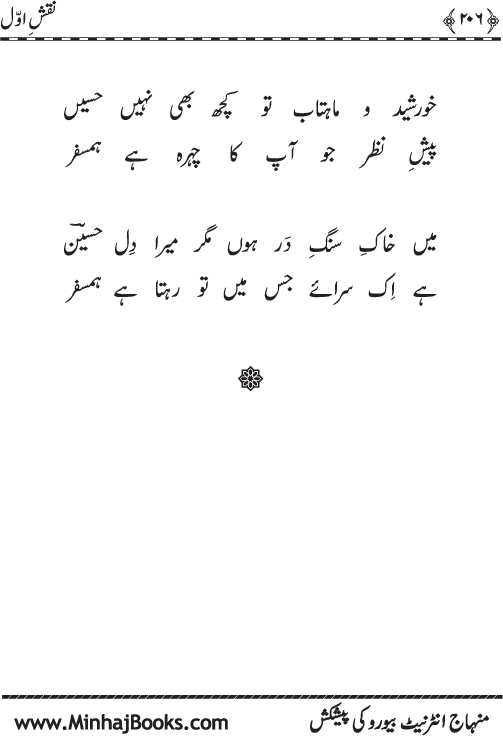 ﴿۲۰۶﴾ نقشِ اوّل
خورشید و ماہتاب تو کچھ بھی نہیں حسیں
پیشِ نظر جو آپ کا چہرہ ہے ہمسفر
میں خاکِ سنگِ دَر ہوں مگر میرا دِل حسینؔ
ہے اِک سرائے جس میں تو رہتا ہے ہمسفر
منہاج انٹرنیٹ بیورو کی پیشکش www.MinhajBooks.com